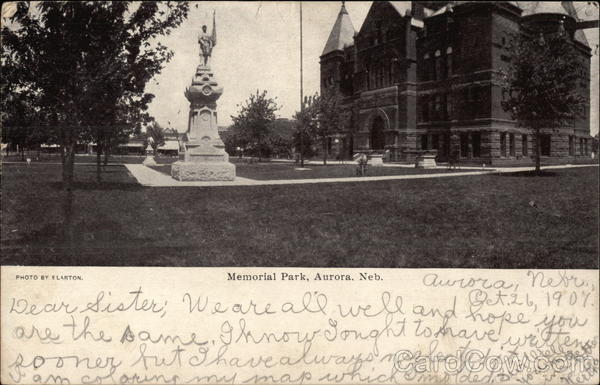 PHOTO BY F. LARTON.
Memorial Park, Aurora, Neb.
Aurora, Nebr.,
Oct. 26, 1907.
Dear Sister; We are all well and hope you
are the same. I know I ought to have written
sooner but I have always
am coloring my map which
CardCow.com